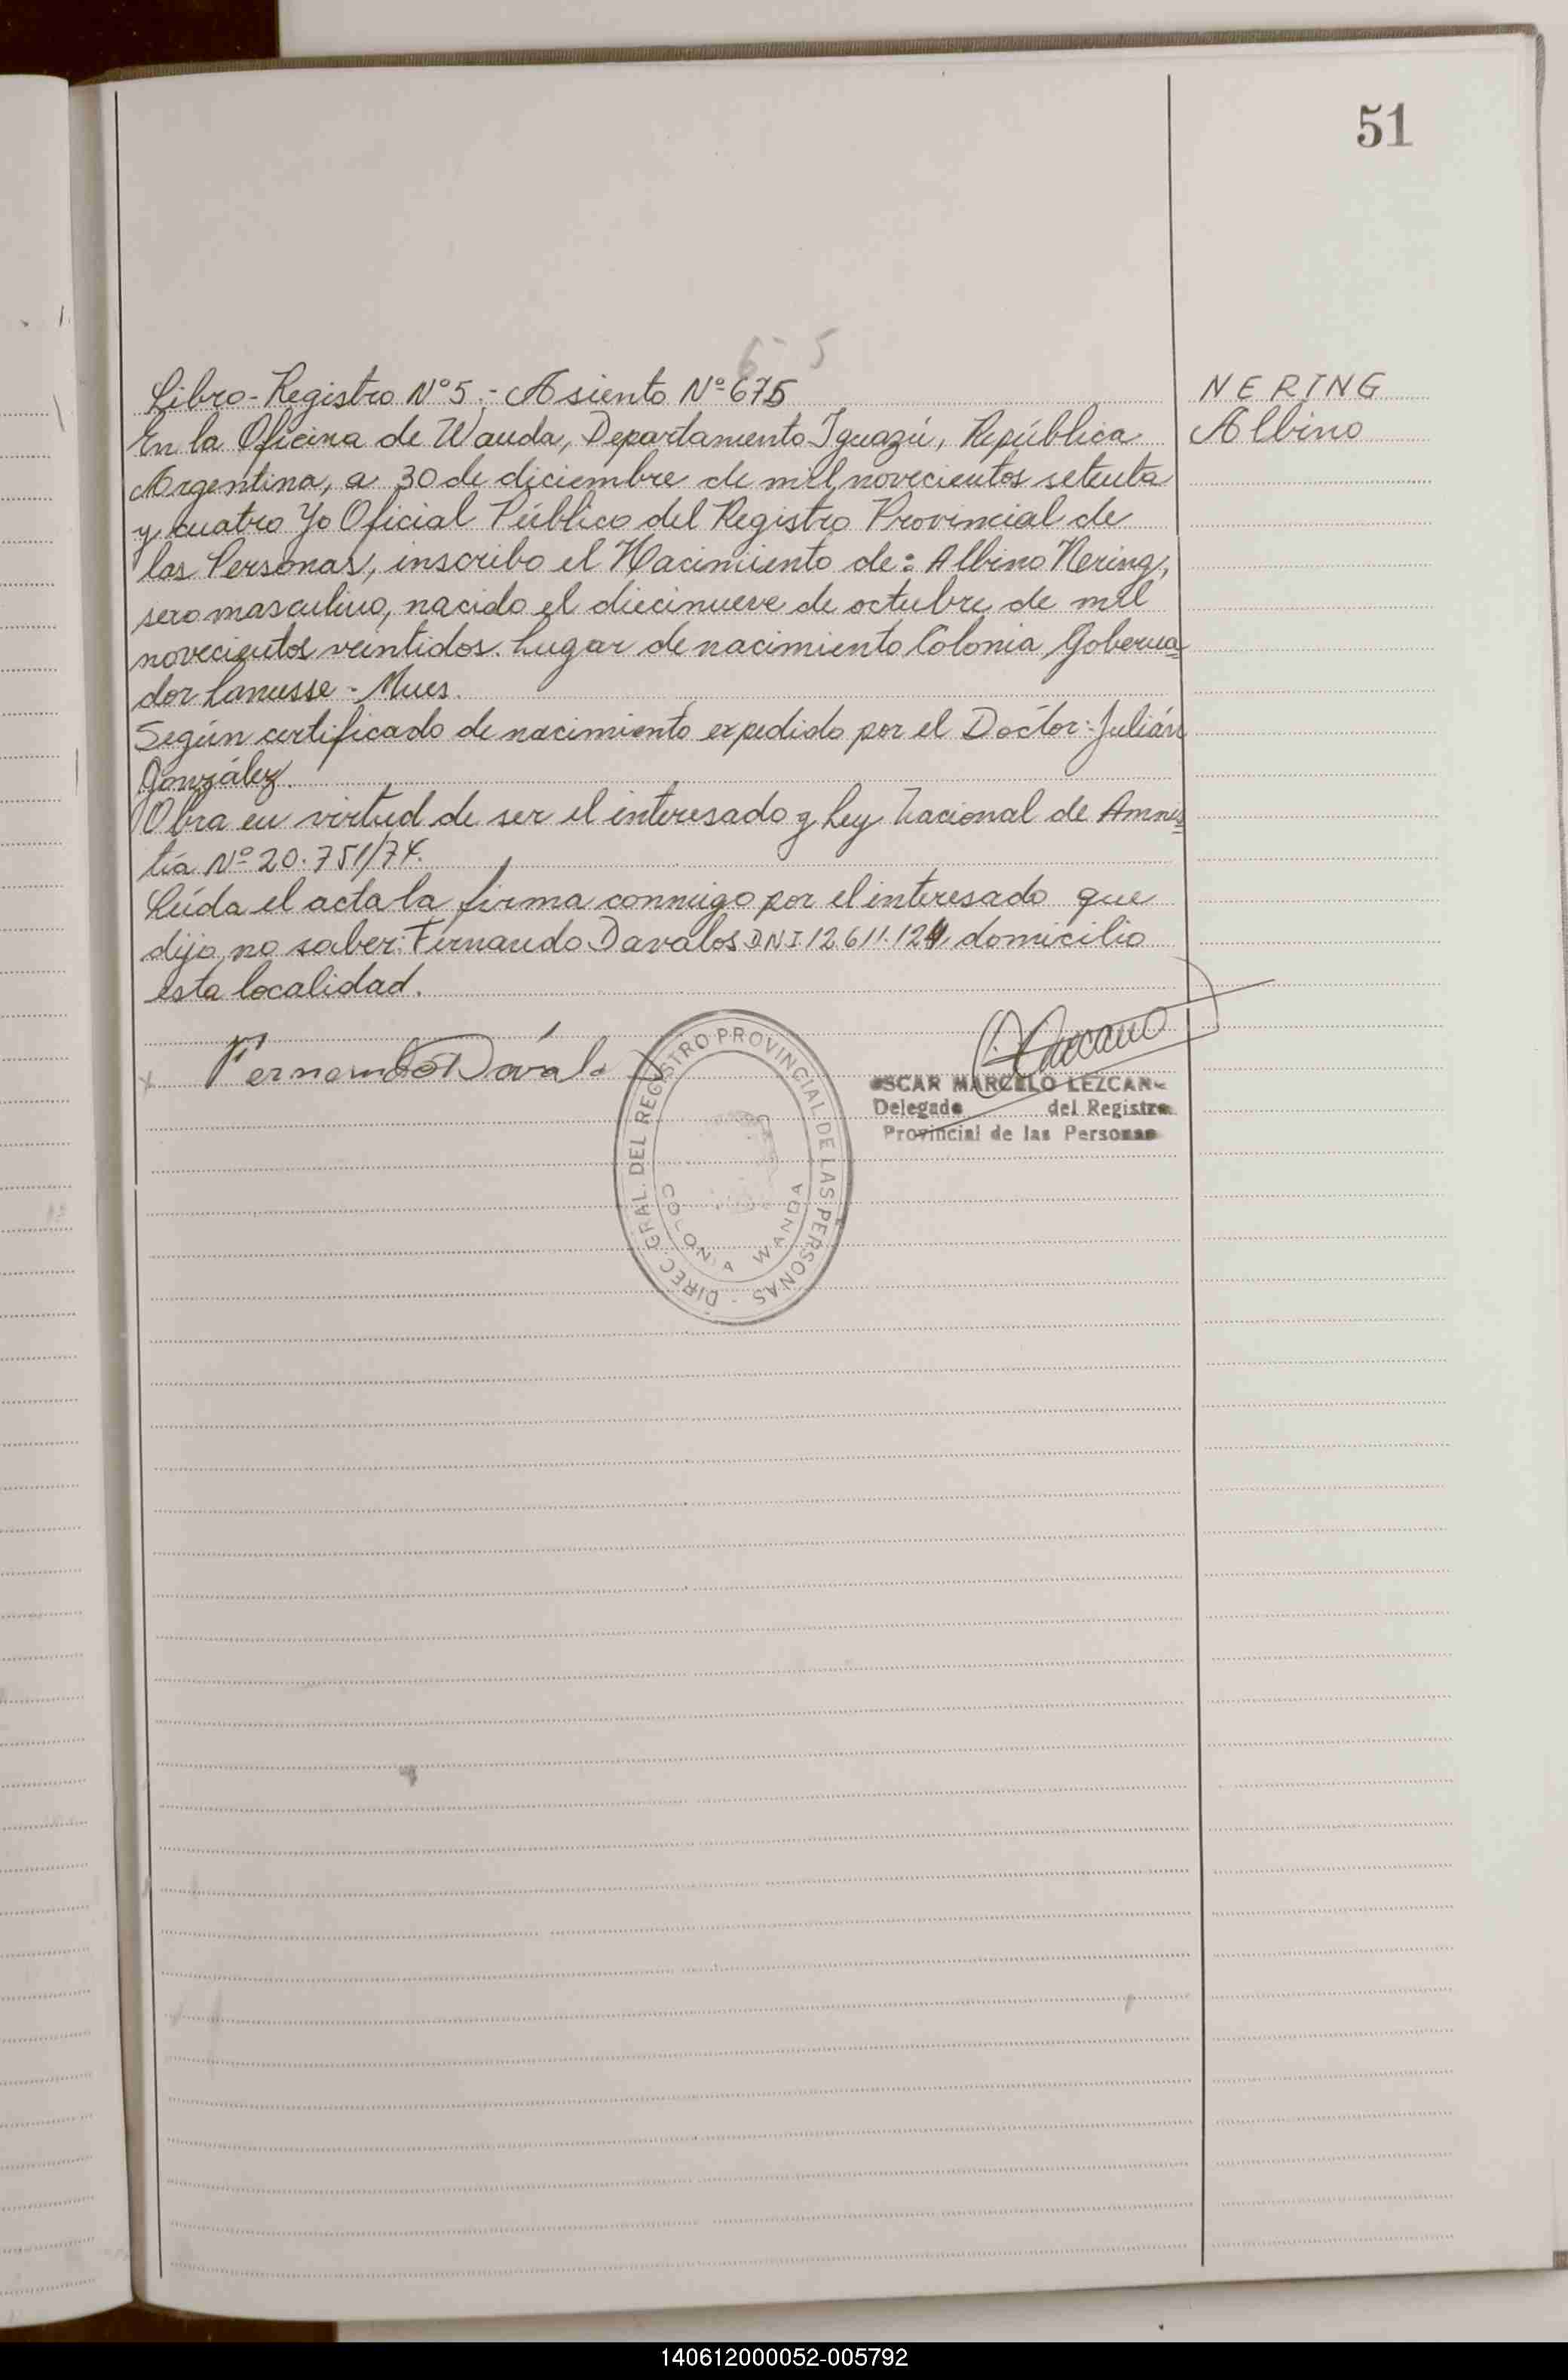 51
6 5
Libro-Registro Nº5.- Asiento Nº 675
En la Oficina de Wanda, Departamento Iguazú, República
Argentina, a 30 de diciembre de mil novecientos setenta
y cuatro Yo Oficial Público del Registro Provincial de
las Personas, inscribo el Nacimiento de: Albino Nering,
sexo masculino, nacido el diecinueve de octubre de mil
novecientos veintidos. Lugar de nacimiento Colonia Goberna
dor Lanusse - Mnes.
Según certificado de nacimiento expedido por el Doctor: Julián
González.
Obra en virtud de ser el interesado y Ley Nacional de Amnis
tía Nº 20.751/74.
Leída el acta la firma conmigo por el interesado que
dijo no saber: Fernando Davalos DNI 12.611.124, domicilio
esta localidad.
NERING
Albino
Fernando Davalo
OSCAR MARCELO LEZCANO
Delegado del Registro
Provincial de las Personas
DIREC. GRAL. DEL REGISTRO PROVINCIAL DE LAS PERSONAS -
COLONIA WANDA
140612000052-005792